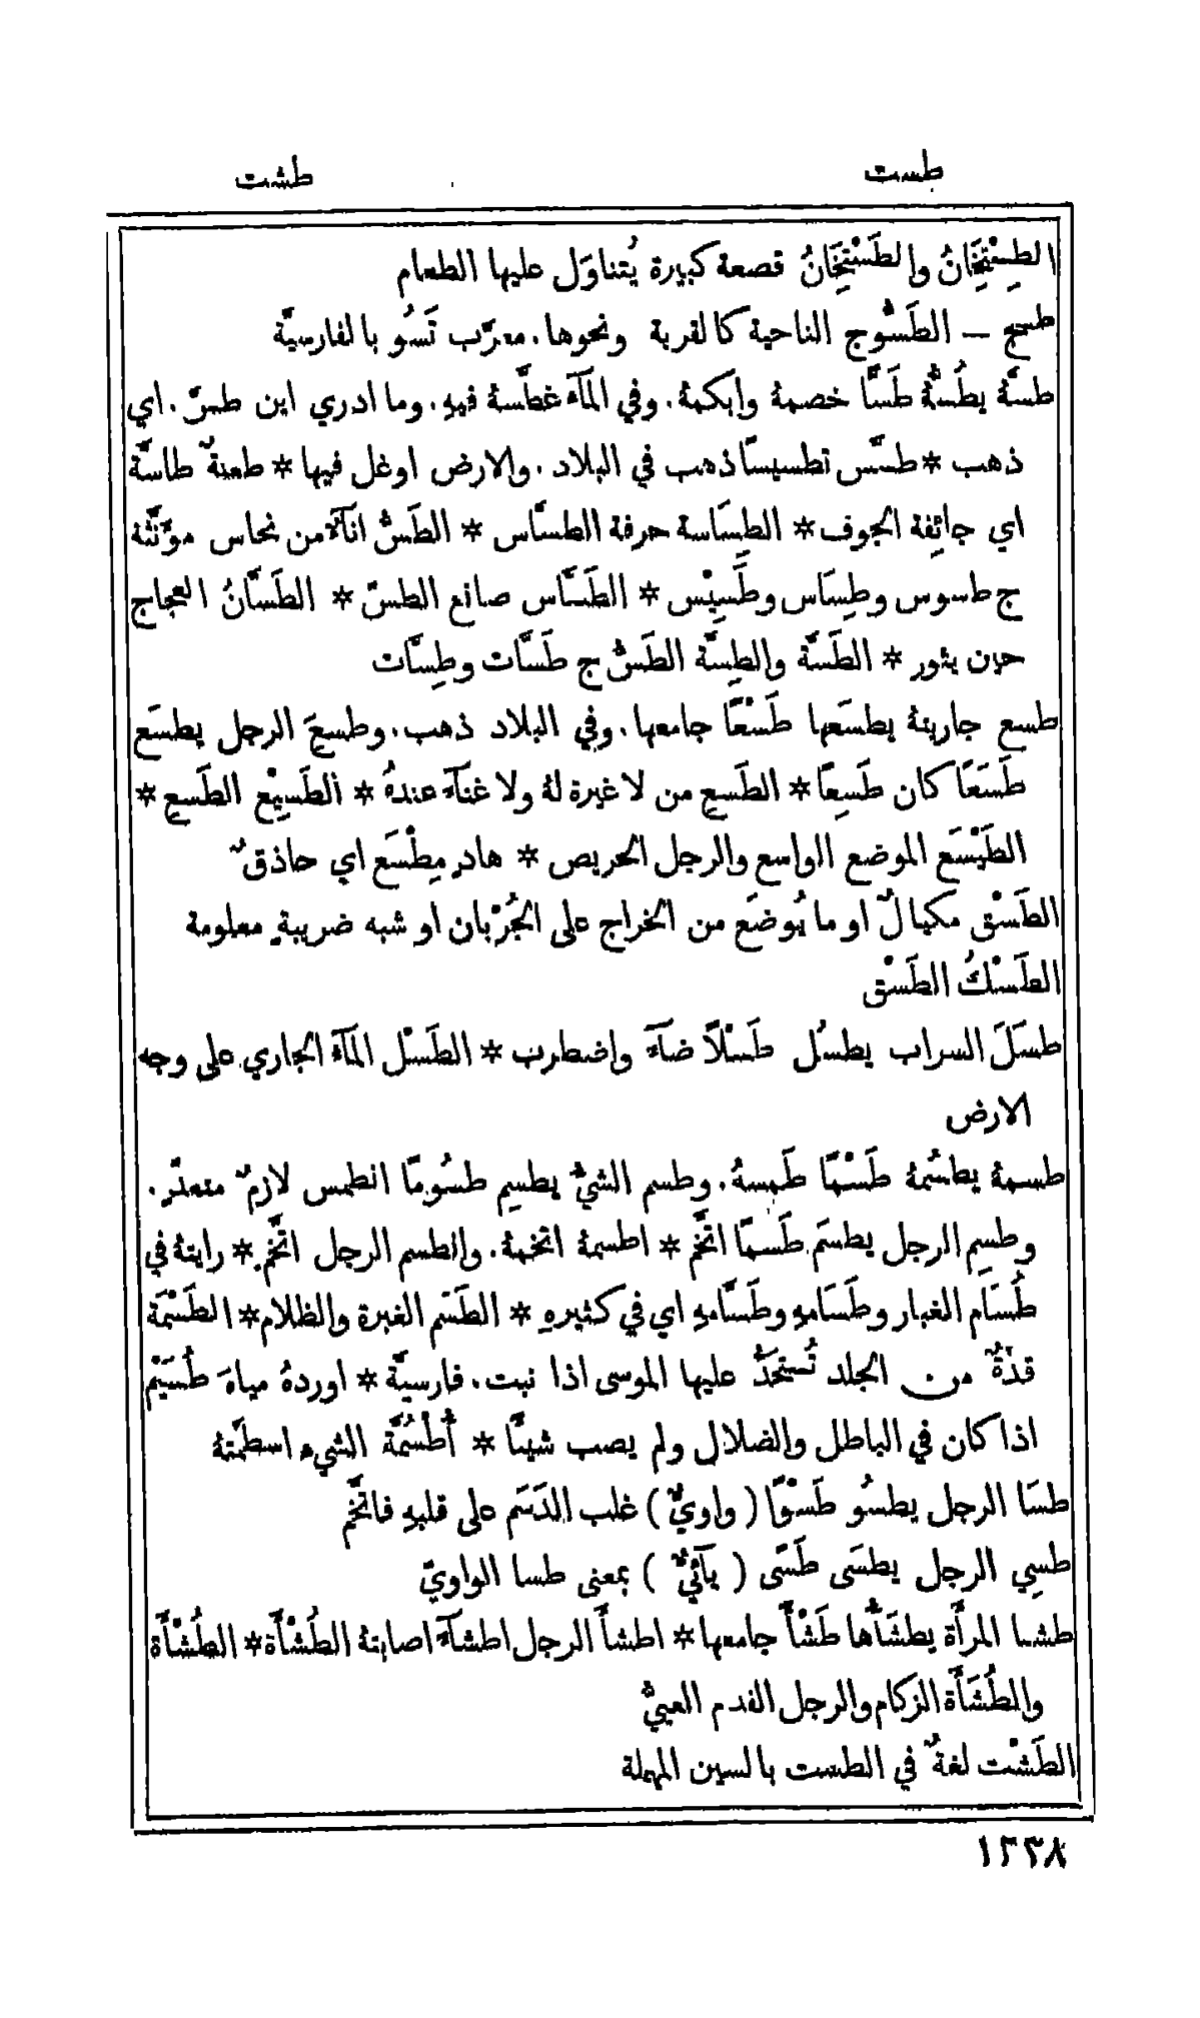 طست
طشت
الطِسِتْخَانُ والطَسْتخَانُ قصعة كبيرة يُتناوَل عليها الطعام
طسج — الطَسُّوج الناحية كالقرية ونحوها. معرَّب تَسُو بالفارسيَّة
طسَّهُ يطُسُّهُ طَسًّا خصمهُ وابكمهُ. وفي المآءِ غطَّسهُ فيهِ. وما ادري اين طسَّ. اي
ذهب * طسَّس تطسيسًا ذهب في البلاد. والارض اوغل فيها * طعنةٌ طاسَّة
اي جائِفة الجوف * الطِسَاسة حرفة الطسَّاس * الطَسُّ انآءٌ من نحاس موَّنَّثة
ج طسوس وطِسَاس وطَسِيْس * الطَسَّاس صانع الطسّ * الطَسَّانُ العجاج
حين يثور * الطَسَّة والطِسَّة الطَسُّ ج طَسَّات وطِسَّات
طسع جاريتهُ يطسَعها طَسْعًا جامعها. وفي البلاد ذهب. وطسِعَ الرجل يطسَع
طَسَعًا كان طَسِعًا * الطَسِع من لا غيرة لهُ ولا غنآءَ عندهُ * الطَسِيْع الطَسِع *
الطَيْسَع الموضع الواسع والرجل الحريص * هادٍ مِطْسَع اي حاذقٌ
الطَسْق مكيالٌ او ما يُوضَع من الخراج على الجُرْبان او شبه ضريبةٍ معلومة
الطَسْكُ الطَسْق
طسَلَ السراب يطسُل طَسْلًا ضآءَ واضطرب * الطَسْل المآءُ الجاري على وجه
الارض
طسمهُ يطسُمهُ طَسْمًا طَمسهُ. وطسم الشيُّ يطسِم طسُومًا انطمس لازمٌ متعدٍّ.
وطسِم الرجل يطسَم طَسَمًا اتَّخَم * اطسمهُ اتخمهُ. وانطسم الرجل اتَّخَم * رايتهُ في
طُسَام الغبار وطَسَامهِ وطَسَّامهِ اي في كثيرهِ * الطَسَم الغبرة والظلام * الطَسْمَة
قدّةٌ من الجلد تُستحَدُّ عليها الموسى اذا نبت. فارسيَّة * اوردهُ مياهَ طُسَيْم
اذا كان في الباطل والضلال ولم يصب شيئًا * أُطْسُمَّة الشيء اسطمَّتهُ
طسَا الرجل يطسُو طَسْوًا (واويٌّ) غلب الدَسَم على قلبهِ فاتَّخم
طسِي الرجل يطسَى طَسًى (يآئيٌّ) بمعنى طسا الواويّ
طشا المرأَة يطشَأُها طَشْأً جامعها * اطشأَ الرجل اطشآءً اصابتهُ الطُشْأَة * الطُشْأَة
والطُشَأَة الزكام والرجل الفدم العييُّ
الطَشْت لغةٌ في الطست بالسين المهملة
١٢٣٨